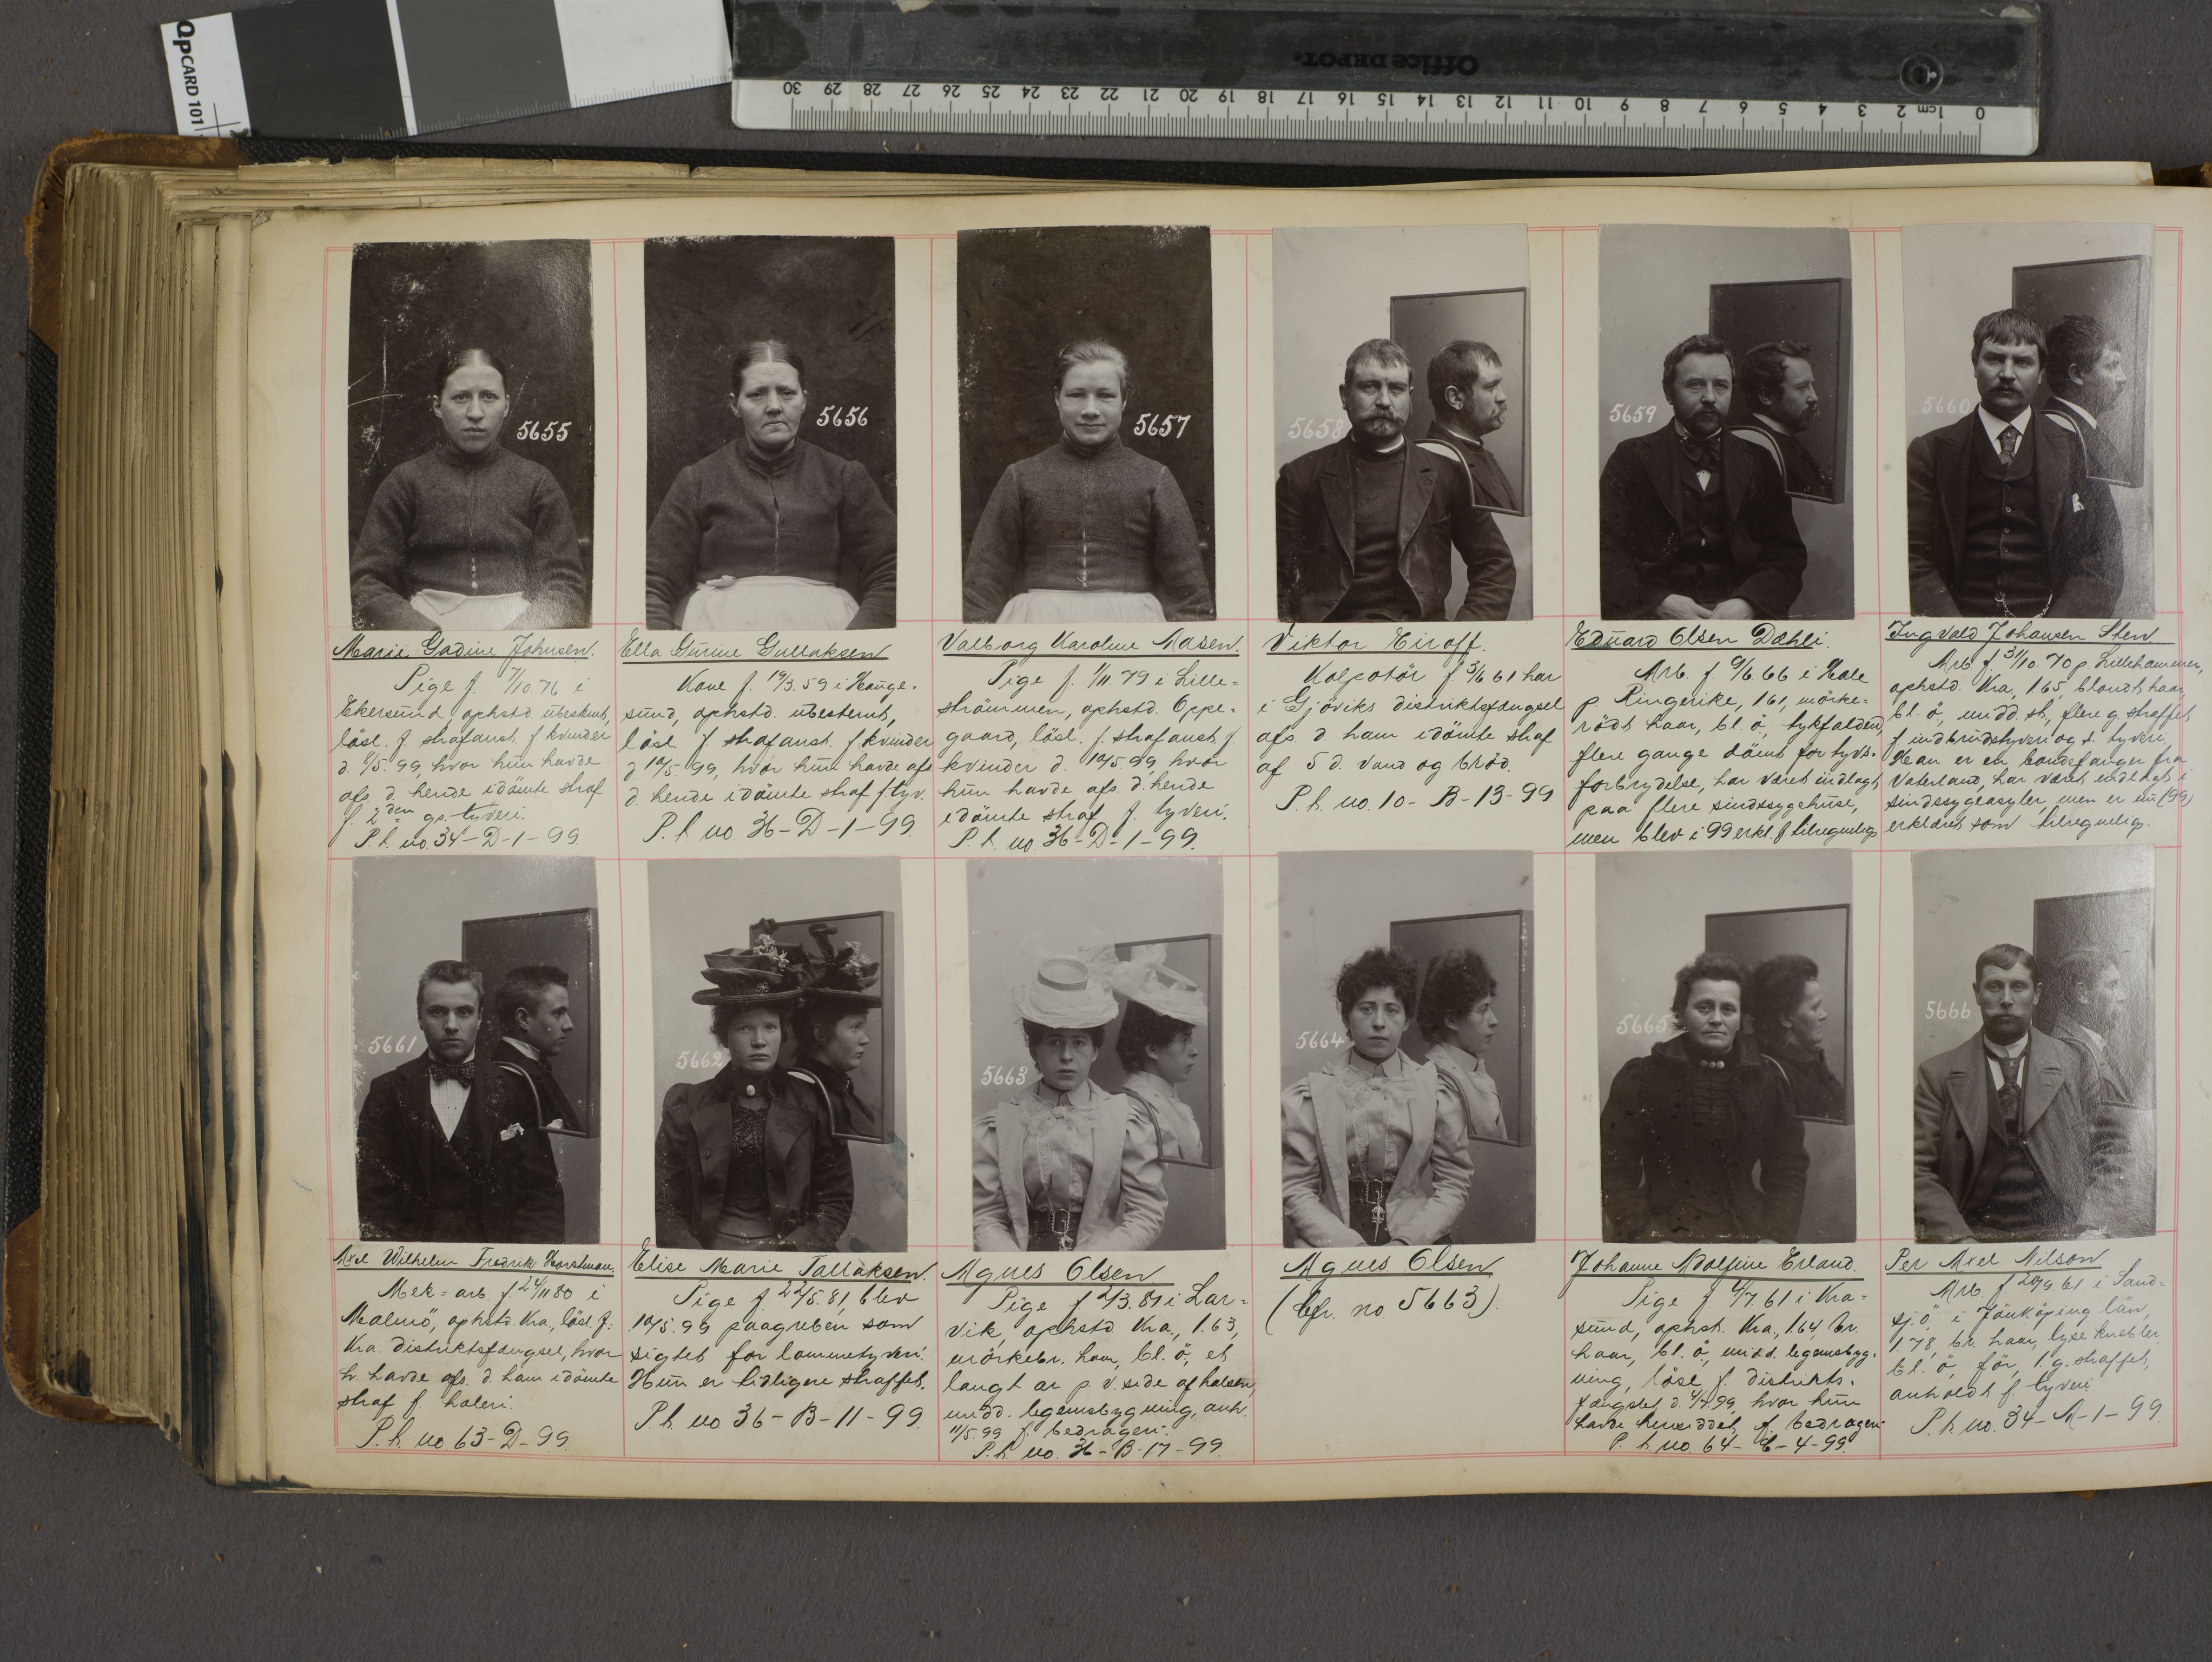 QPCARD 101
Office DEPOT.
30 29 28 27 26 25 24 23 22 21 20 19 18 17 16 15 14 13 12 11 10 9 8 7 6 5 4 3 2 1cm 0
5655
Marie Gadine Johnsen.
Pige f. 7/10.76 i
Ekersund, ophstd. ubestemt,
løsl. f. strafanst. f. kvinder
d. 8/5.99, hvor hun havde
afs. d. hende idömte straf
f. 2den gs. tyveri.
P.h. no. 34-D-1-99.
5656
Ella Gurine Gullaksen
Kone f. 19/3.59 i Hauge-
sund, ophstd. ubestemt,
lösl. f. strafanst. f. kvinder
d. 10/5.99, hvor hun havde afs.
d. hende idömte straf f. tyv.
P.h. no 36-D-1-99.
5657
Valborg Karoline Masen.
Pige f. 1/11 79 i Lille-
strömmen, ophstd. Oppe-
gaard, lösl. f. strafanst. f.
kvinder d. 10/5 99, hvor
hun havde afs. d. hende
idömte straf f. tyveri.
P.h. no 36-D-1-99.
5658
Viktor Eiroff.
Kolpotör f. 3/6 61 har
i Gjöviks distriktsfængsel
afs. d. ham idömte straf
af 5 d. vand og bröd.
P.h. no. 10-B-13-99
5659
Eduard Olsen Dæhli.
Arb. f. 9/6 66 i Hole
p. Ringerike, 161, mörke-
rödt haar, bl. ö, tykfalden,
flere gange dömt for tyvs-
forbrydelse, har været indlagt
paa flere sindssygehuse,
men blev i 99 erkl. f. tilregnelig
5660
Ingvald Johansen Sten
Arb. f. 31/10 70 p. Lillehammer,
ophstd. Kra, 165, blondt haar,
bl. ö, midd. st., flere g. straffet
f. indbrudstyveri og s. tyveri.
Han er en bondefanger fra
Vaterland, har været indlagt i
sindssygeasyler, men er nu (99)
erklæret som tilregnelig.
5661
Axel Wilhelm Fredrik Horstman.
Mek-arb. f. 24/11 80 i
Malmö, ophstd. Kra, lösl. f.
Kra. distriktsfængsel, hvor
h. havde afs. d. ham idömte
straf f. hæleri.
P.h. no 63-D-99.
5662
Elise Marie Tallaksen.
Pige f. 22/5.81, blev
10/5.99 paagreben som
sigtet for lommetyveri.
Hun er tidligere straffet.
P.h. no 36-B-11-99
5663
Agnes Olsen
Pige f. 2/3.81 i Lar-
vik, ophstd. Kra., 1.63,
mörkebr. haar, bl. ö, et
langt ar p. v. side af halsen,
midd. legemsbygning, anh.
11/5.99 f. bedrageri.
P.h. no. 36-B-17-99.
5664
Agnes Olsen
(Cfr. no 5663).
5665
Johanne Adolfine Erland.
Pige f. 4/7 61 i Kra-
sund, ophst. Kra, 1.64, br.
haar, bl. ö, midd. legemsbyg-
ning, lösl. f. distrikts-
fængslet d. 4/4.99, hvor hun
havde hensiddet f. bedrageri
P.h. no 64-E-4-99.
5666
Per Axel Nilson
Arb. f. 20/9 61 i Sand-
sjö i Jönköping län,
1.78, br. haar, lyse knebler,
bl. ö, för, 1. g. straffet,
anholdt f. tyveri.
P.h. no. 34-A-1-99.